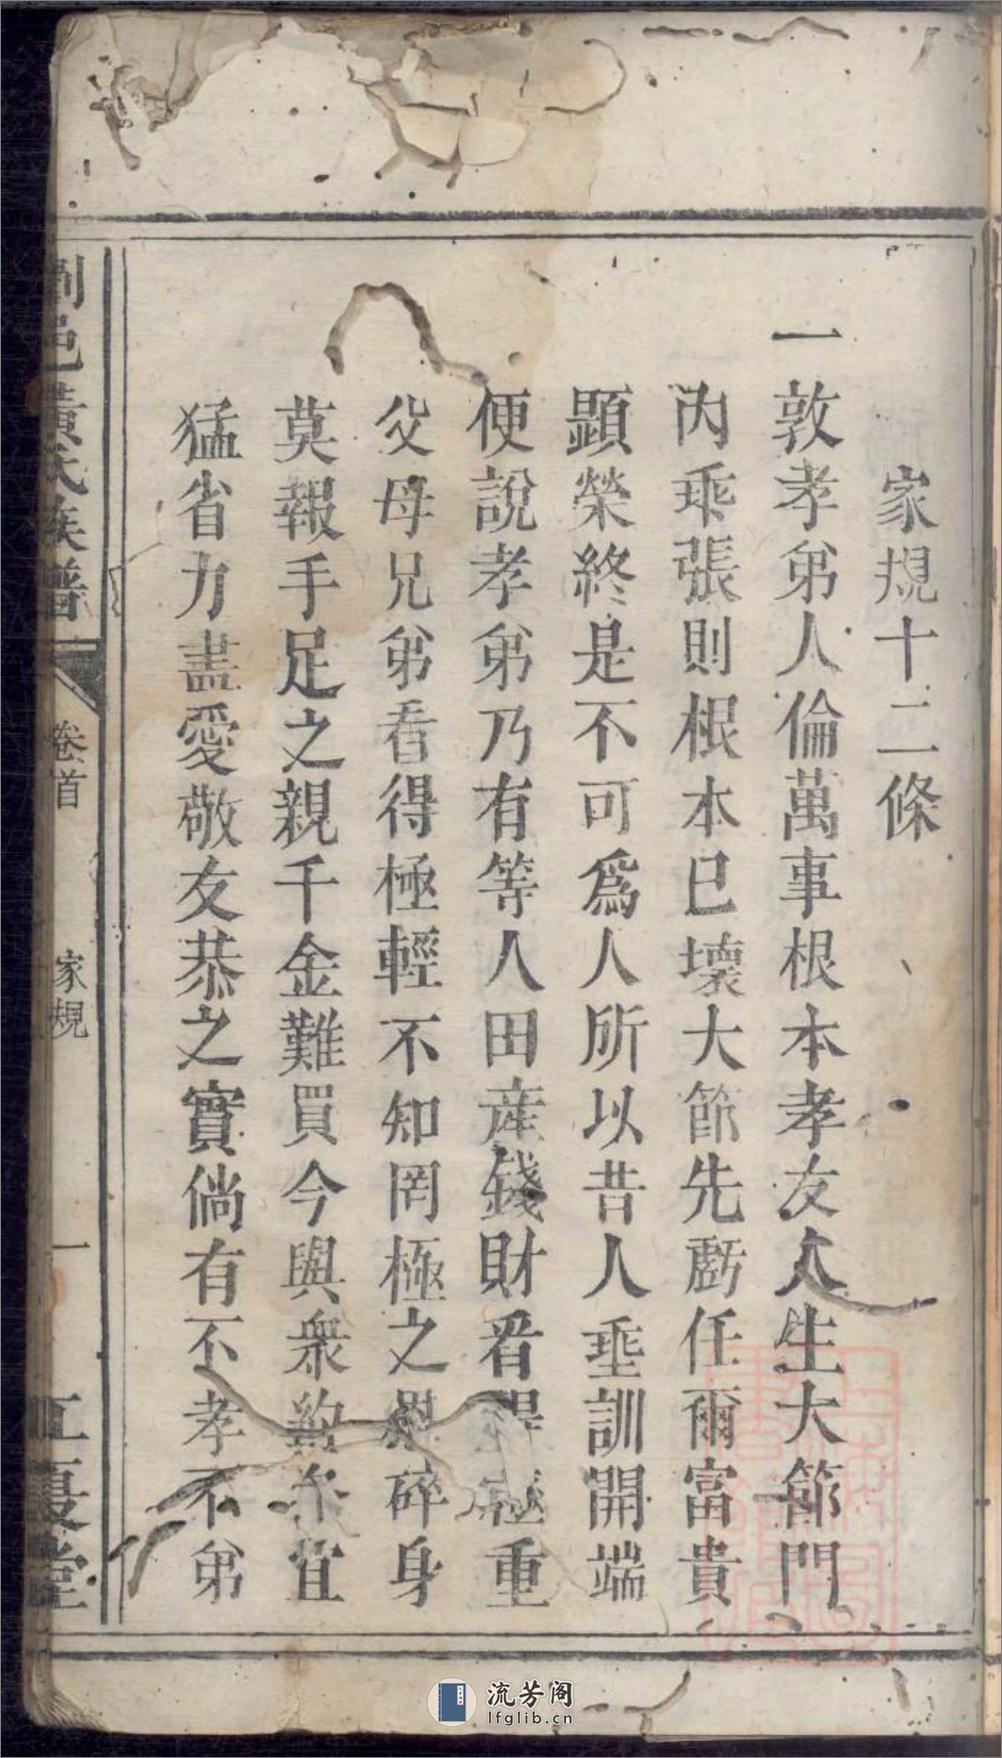 家規十二條
一敦孝弟人倫萬事根本孝友人生大節門
內乖張則根本已壞大節先虧任爾富貴
顯榮終是不可爲人所以昔人垂訓開端
便說孝弟乃有等人田産錢財看得極重
父母兄弟看得極輕不知罔極之恩碎身
莫報手足之親千金難買今與衆約亦宜
猛省力盡愛敬友恭之實倘有不孝不弟
邑黃氏族譜
卷首
家規
一
江夏堂
流芳阁
lfglib.cn